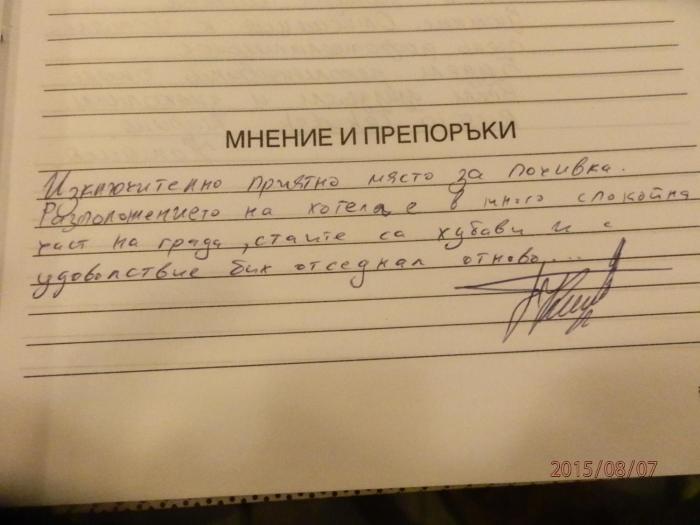 МНЕНИЕ И ПРЕПОРЪКИ
Изключително приятно място за почивка.
Разположението на хотела е в много спокойна
част на града, стаите са хубави и с
удоволствие бих отседнал отново....
2015/08/07